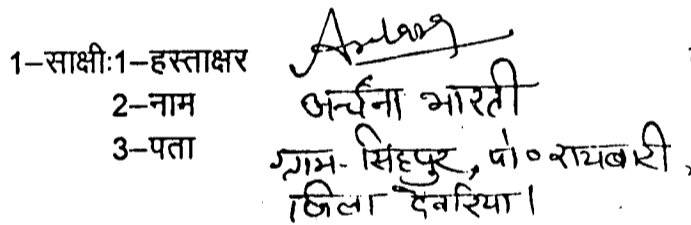 1–साक्षीः1–हस्ताक्षर
2–नाम अर्चना भारती
3–पता ग्राम- सिंहपुर, पो० रायबारी,
जिला देवरिया।